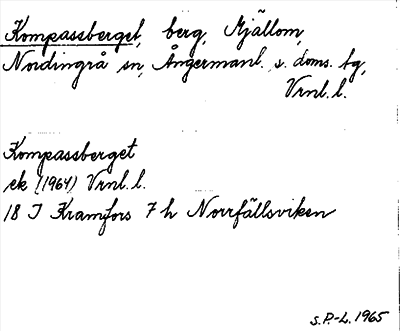 Kompassberget, berg, Mjällom,
Nordingrå sn, Ångermanl. s. doms. tg,
Vrnl. l.
Kompassberget
ek (1964) Vrnl. l.
18 I Kramfors 7 h Norrfällsviken
S.P.-L. 1965